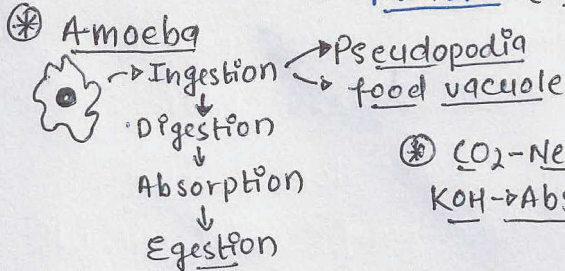 * Amoeba
→ Ingestion → Pseudopodia
→ food vacuole
↓
Digestion
↓
Absorption
↓
Egestion
* CO2-Ne
KOH→Abs